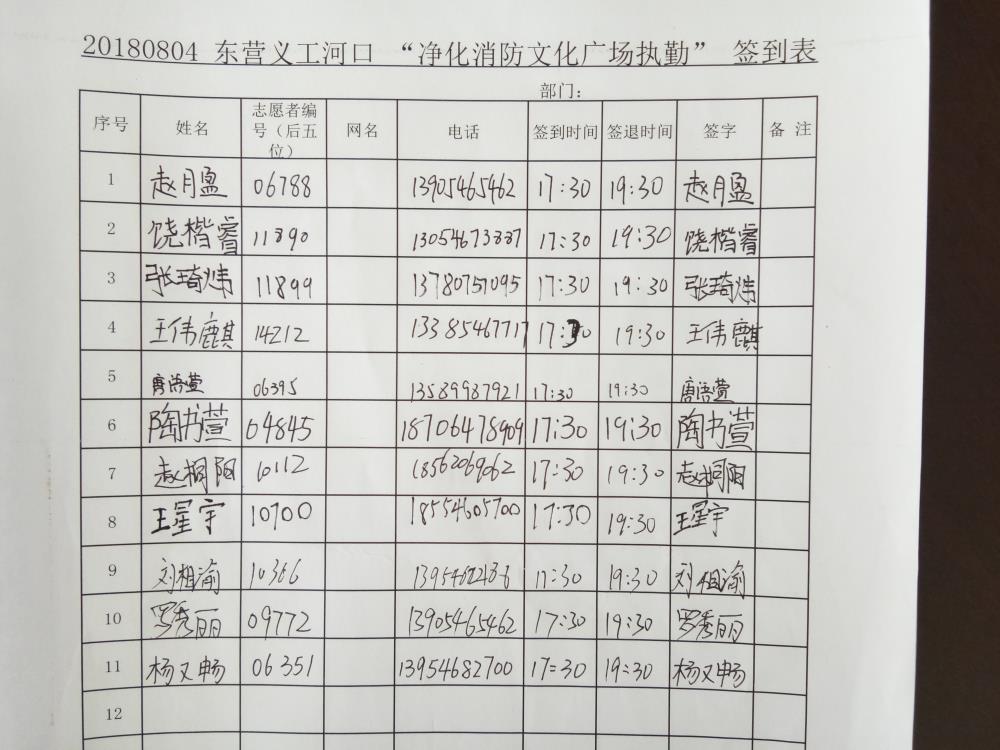 20180804 东营义工河口 “净化消防文化广场执勤” 签到表
部门：
序号 姓名 志愿者编号（后五位） 网名 电话 签到时间 签退时间 签字 备 注
1 赵月盈 06788 13905465462 17:30 19:30 赵月盈
2 饶楷睿 11890 13054673887 17:30 19:30 饶楷睿
3 张琦炜 11899 13780757095 17:30 19:30 张琦炜
4 王伟麒 14212 13385467717 17:30 19:30 王伟麒
5 唐语萱 06395 13589987921 17:30 19:30 唐语萱
6 陶书萱 04845 18706478909 17:30 19:30 陶书萱
7 赵桐阳 10112 18562069062 17:30 19:30 赵桐阳
8 王星宇 10700 18554605700 17:30 19:30 王星宇
9 刘相渝 10366 17:30 19:30 刘相渝
10 罗秀丽 09772 13905465462 17:30 19:30 罗秀丽
11 杨又畅 06351 13954682700 17:30 19:30 杨又畅
12